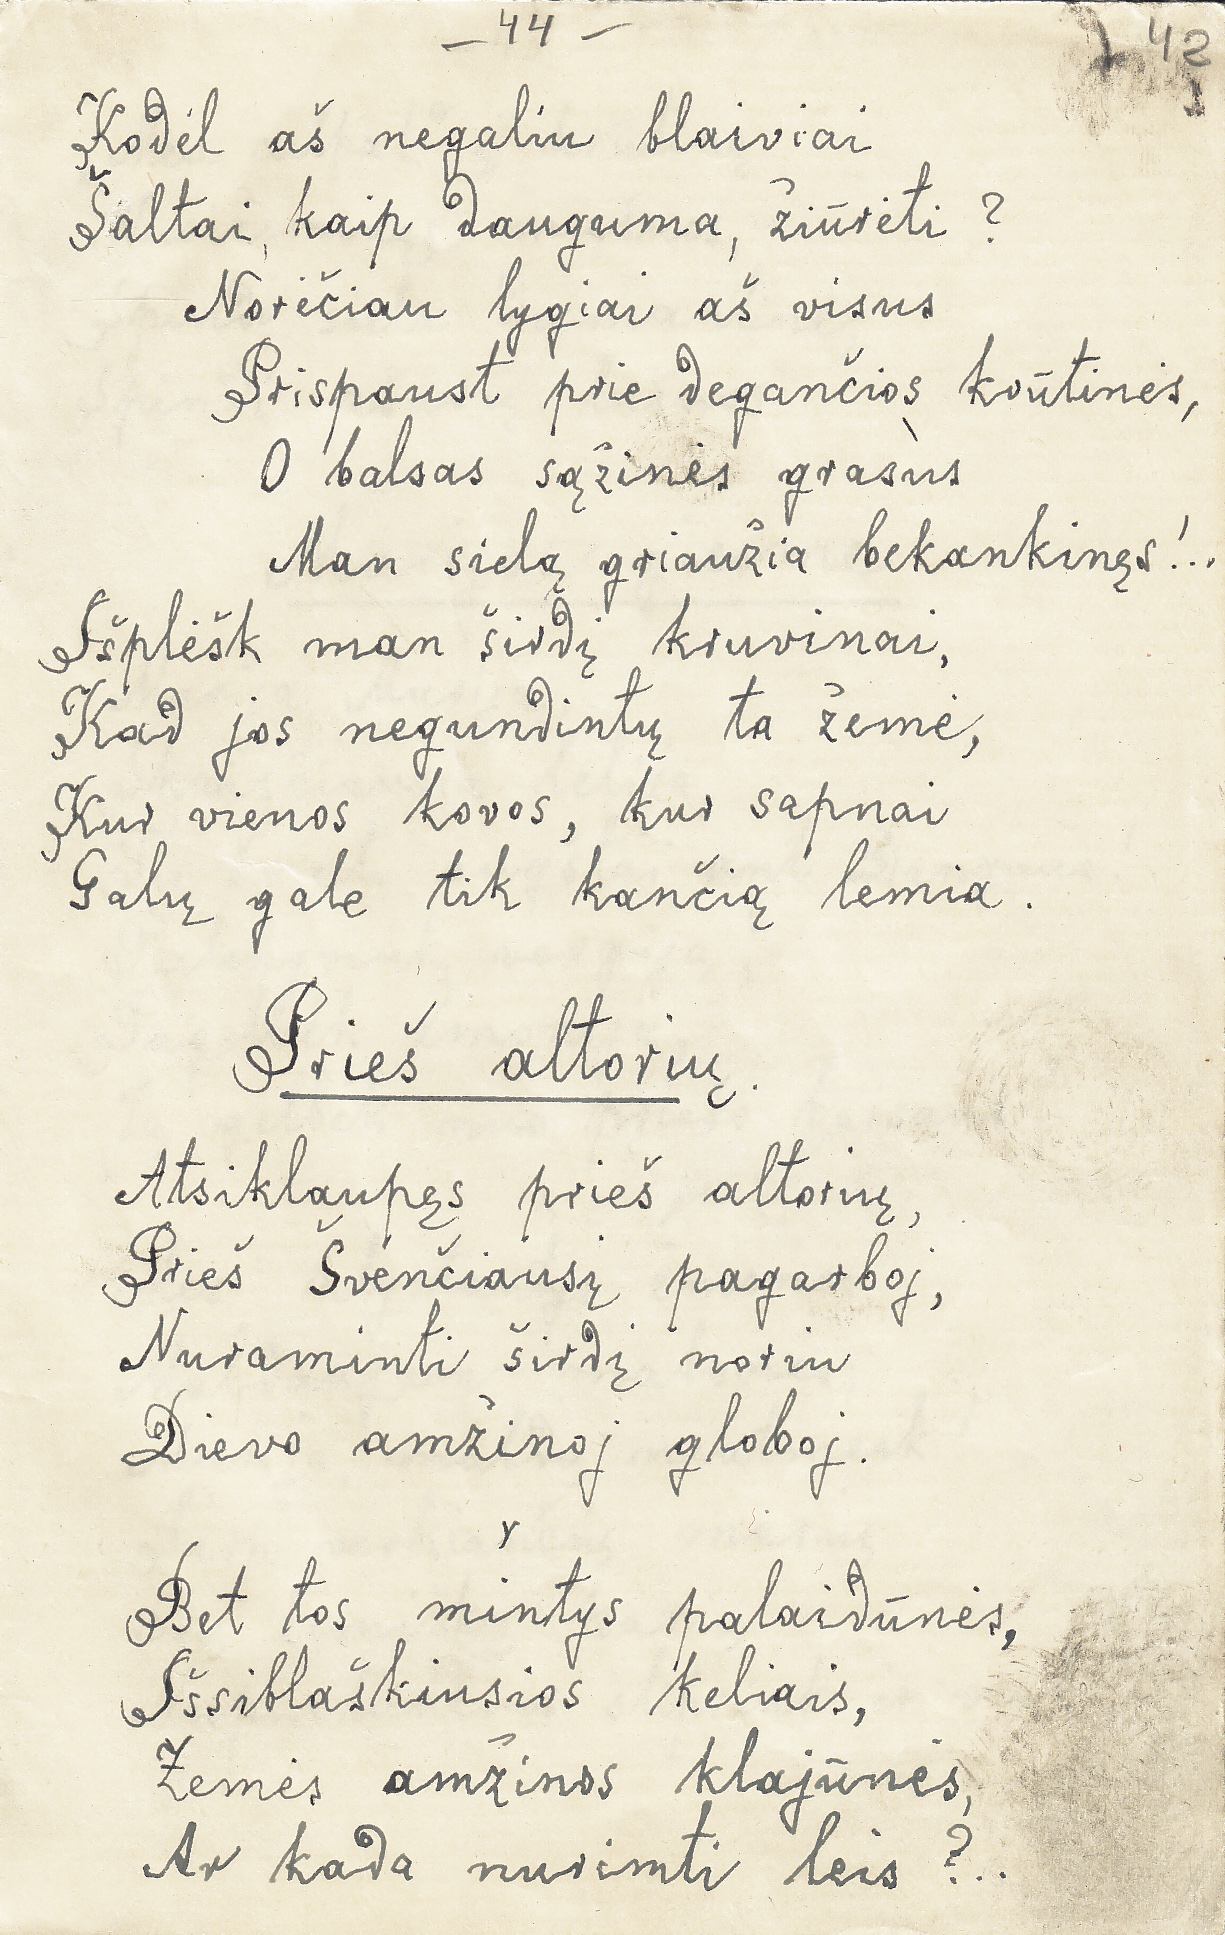 – 44 –
42
Kodėl aš negaliu blaiviai
Šaltai, kaip dauguma, žiūrėti?
Norėčiau lygiai aš visus
Prispaust prie degančios krūtinės,
O balsas sąžinės grasùs
Man sielą griaužia bekankinęs!..
Išplėšk man širdį kruvinai,
Kad jos negundintų ta žemė,
Kur vienos kovos, kur sapnai
Galų gale tik kančią lemia.
Prieš altorių.
Atsiklaupęs prieš altorių,
Prieš Švenčiausį pagarboj,
Nuraminti širdį noriu
Dievo amžinoj globoj.
Bet tos mintys palaidūnės,
Išsiblaškiusios keliais,
Žemės amžinos klajūnės,
Ar kada nurimti leis?..